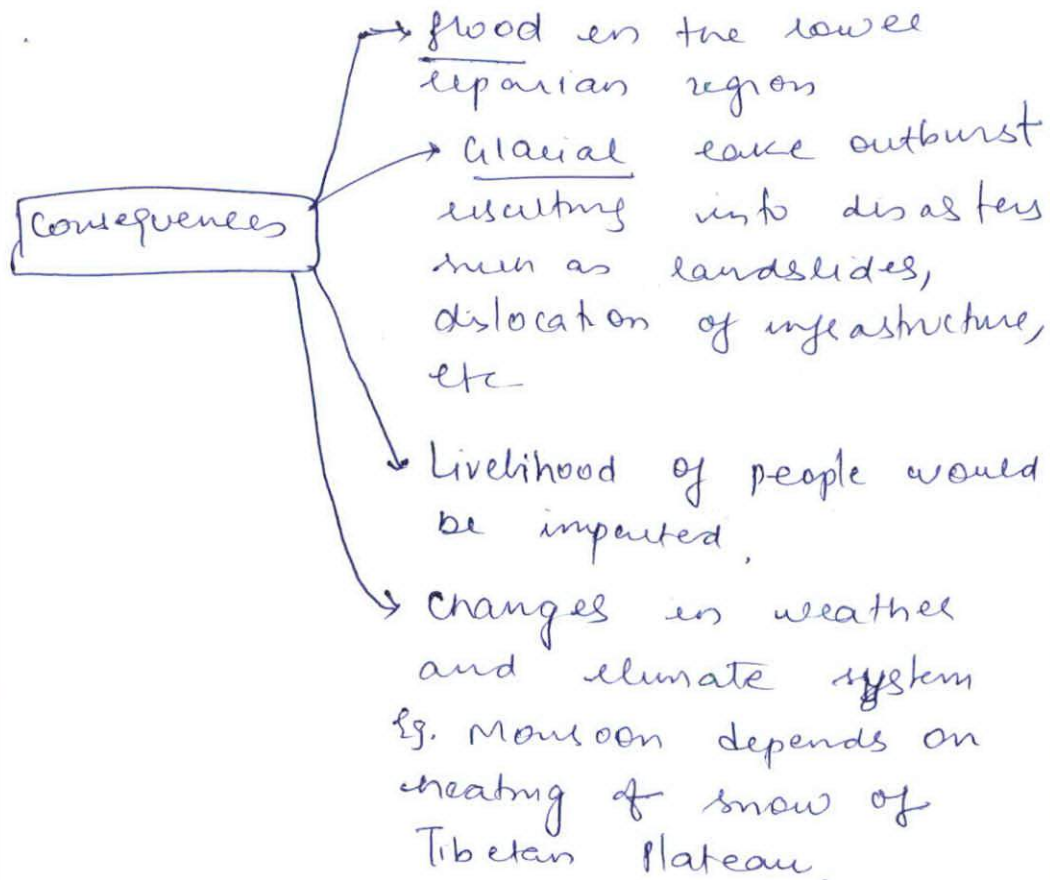 flood in the lower
riparian region
Glacial lake outburst
Consequences
resulting into disasters
such as landslides,
dislocation of infrastructure,
etc
Livelihood of people would
be impacted.
Changes in weather
and climate system
Eg. Monsoon depends on
heating of snow of
Tibetan Plateau.